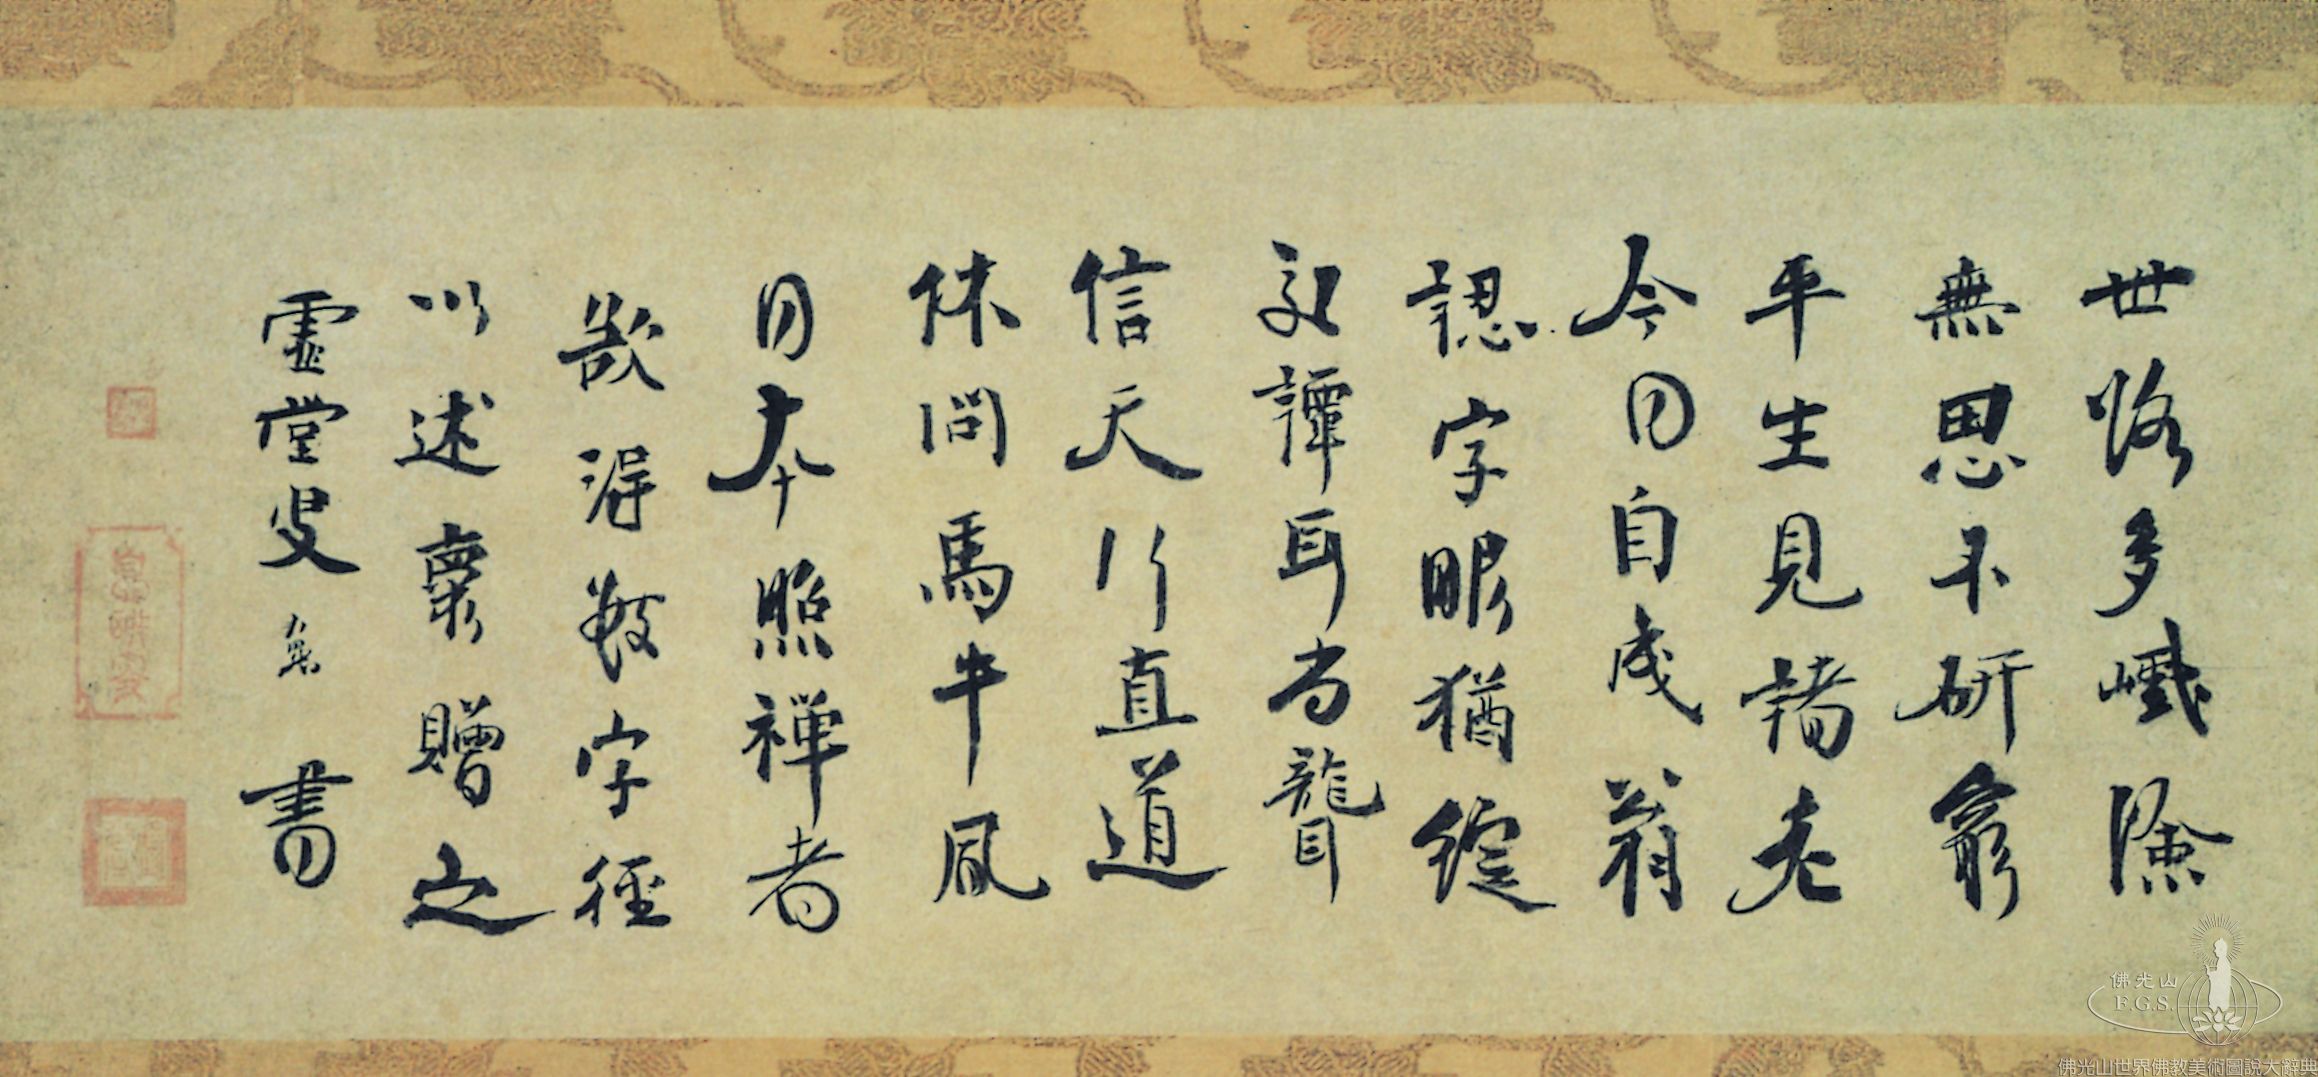 世路多巇險
無思不研窮
平生見諸老
今日自成翁
認字眼猶綻
交譚耳尚聾
信天行直道
休問馬牛風
日本照禪者
欲得數字徑
以述懷贈之
虛堂叟智愚書
佛光山
F.G.S.
佛光山世界佛教美術圖說大辭典